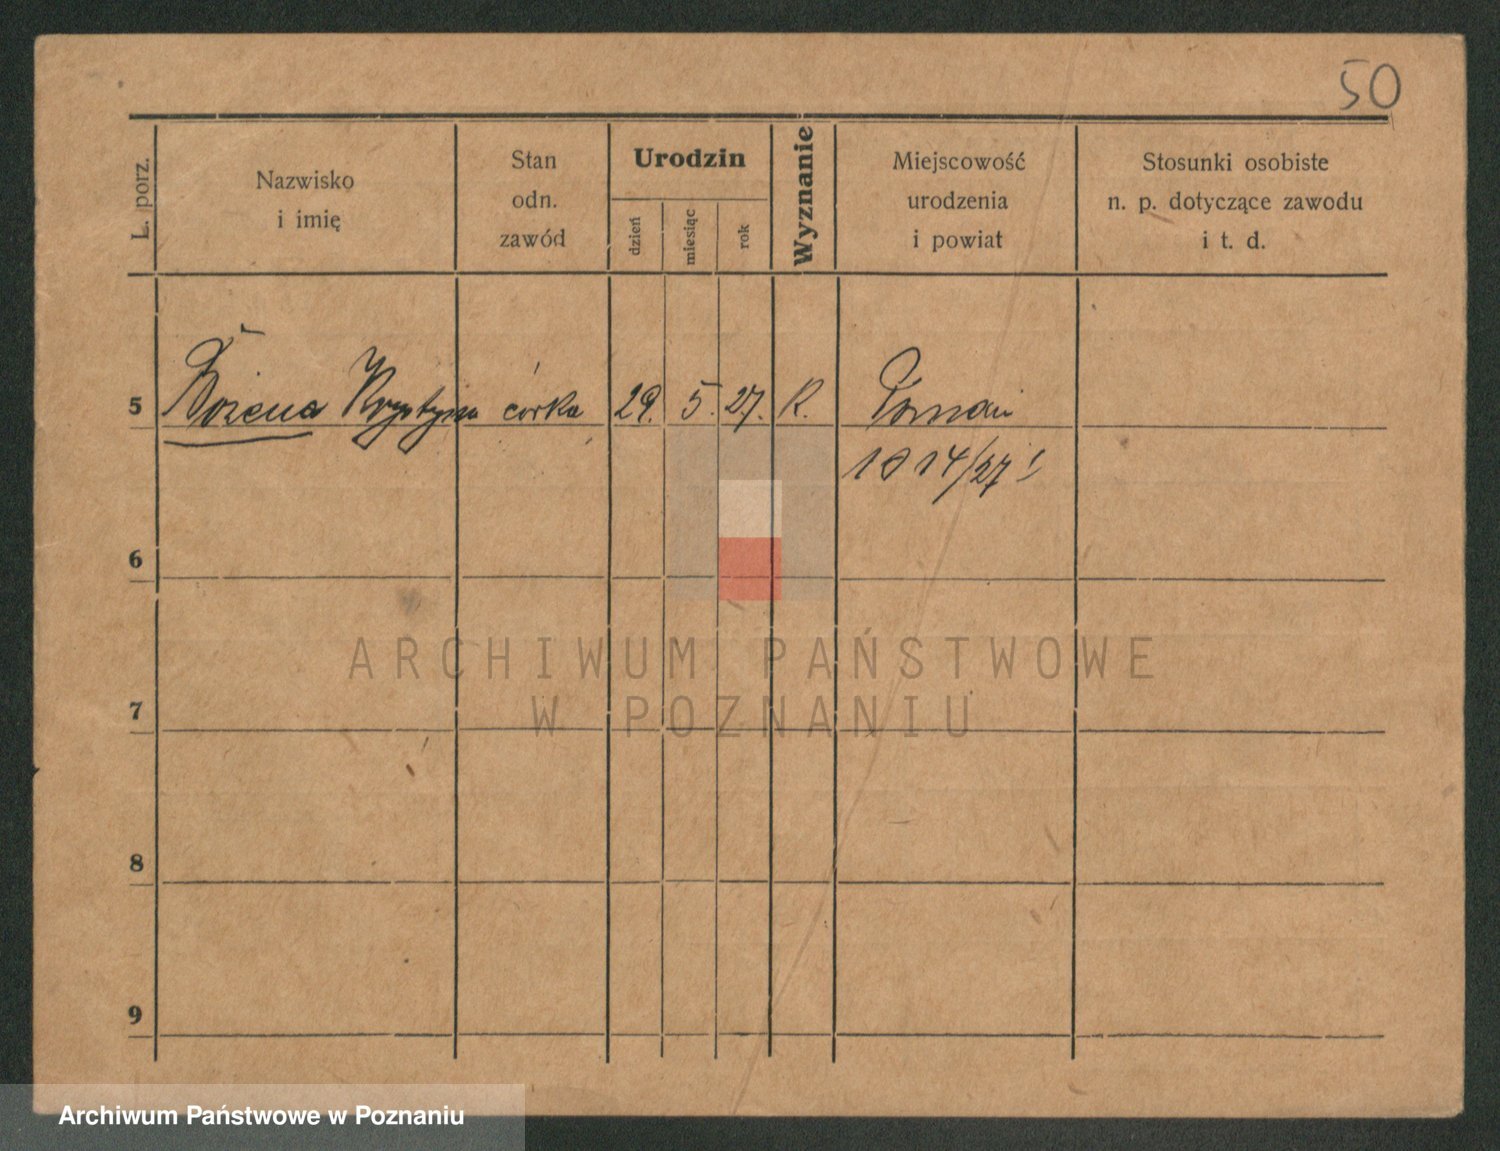 50
L. porz.
Nazwisko
i imię
Stan
odn.
zawód
Urodzin
dzień
miesiąc
rok
Wyznanie
Miejscowość
urodzenia
i powiat
Stosunki osobiste
n. p. dotyczące zawodu
i t. d.
5 Bożena Krystyna córka 29. 5. 27. R. Poznań
1014/27
6
ARCHIWUM PAŃSTWOWE
W POZNANIU
7
8
9
Archiwum Państwowe w Poznaniu